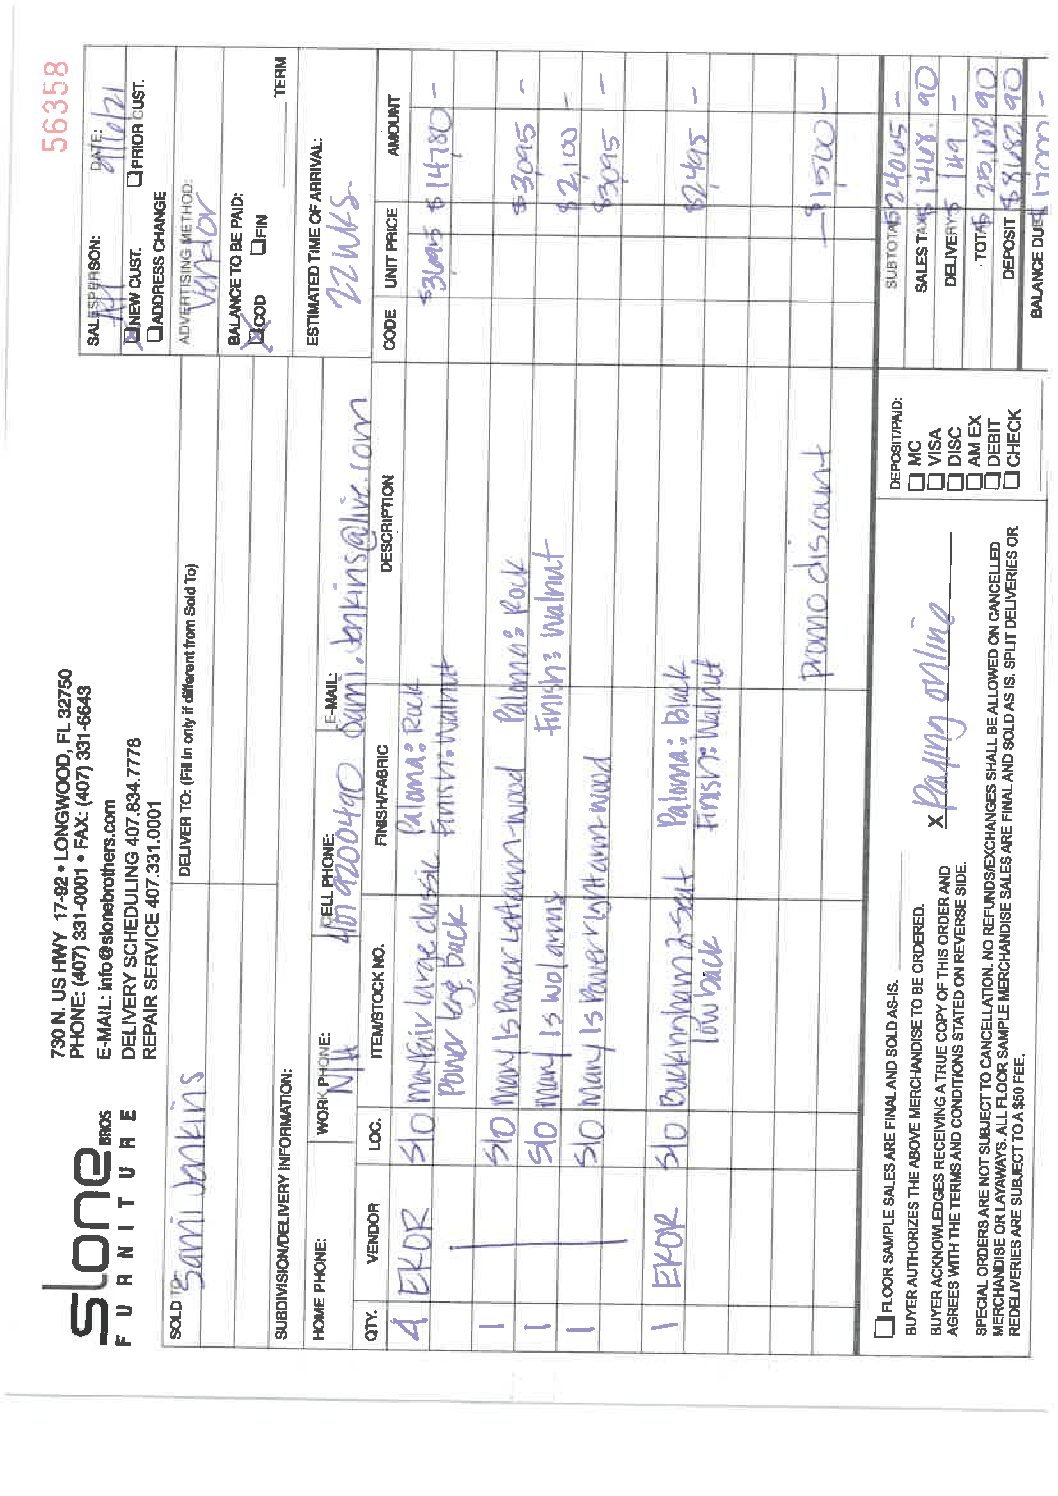 56358
slone BROS
FURNITURE
730 N. US HWY 17-92 • LONGWOOD, FL 32750
PHONE: (407) 331-0001 • FAX: (407) 331-6643
E-MAIL: info@slonebrothers.com
DELIVERY SCHEDULING 407.834.7778
REPAIR SERVICE 407.331.0001
SALESPERSON: DATE:
NEW CUST. PRIOR CUST.
ADDRESS CHANGE
ADVERTISING METHOD:
Vendor
BALANCE TO BE PAID:
COD FIN TERM
ESTIMATED TIME OF ARRIVAL:
22 WKS
SOLD TO: Sami Jenkins
DELIVER TO: (Fill in only if different from Sold To)
SUBDIVISION/DELIVERY INFORMATION:
HOME PHONE: WORK PHONE: N/A CELL PHONE: 407 9200490 E-MAIL: Sami.Jenkins@live.com
QTY. VENDOR LOC. ITEM/STOCK NO. FINISH/FABRIC DESCRIPTION CODE UNIT PRICE AMOUNT
4 EKOR S/O Mayfair large classic Paloma: Rock $3695 $14780 -
Power log. back Finish: Walnut
1 S/O Mary Is Power Left arm-wood Paloma: Rock $3095 -
1 S/O Mary Is wo/arms Finish: Walnut $2,100 -
1 S/O Mary Is Power right arm-wood $3095 -
1 EKOR S/O Buckingham 2-Seat Paloma: Black $2495 -
low back Finish: Walnut
promo discount -$1500 -
FLOOR SAMPLE SALES ARE FINAL AND SOLD AS-IS.
BUYER AUTHORIZES THE ABOVE MERCHANDISE TO BE ORDERED.
BUYER ACKNOWLEDGES RECEIVING A TRUE COPY OF THIS ORDER AND
AGREES WITH THE TERMS AND CONDITIONS STATED ON REVERSE SIDE.
X Paying online
SPECIAL ORDERS ARE NOT SUBJECT TO CANCELLATION. NO REFUNDS/EXCHANGES SHALL BE ALLOWED ON CANCELLED
MERCHANDISE OR LAYAWAYS. ALL FLOOR SAMPLE MERCHANDISE SALES ARE FINAL AND SOLD AS IS. SPLIT DELIVERIES OR
REDELIVERIES ARE SUBJECT TO A $50 FEE.
DEPOSIT/PAID:
MC
VISA
DISC
AM EX
DEBIT
CHECK
SUBTOTAL $24065 -
SALES TAX $1468.90
DELIVERY $149 -
TOTAL $25,682 90
DEPOSIT $8682 90
BALANCE DUE $17000 -